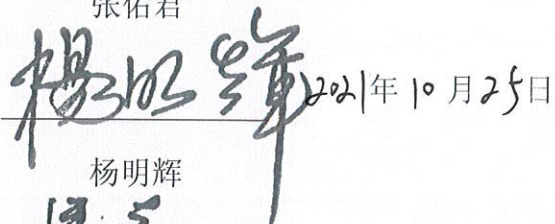 张佑君
楊明辉 2021年10月25日
杨明辉